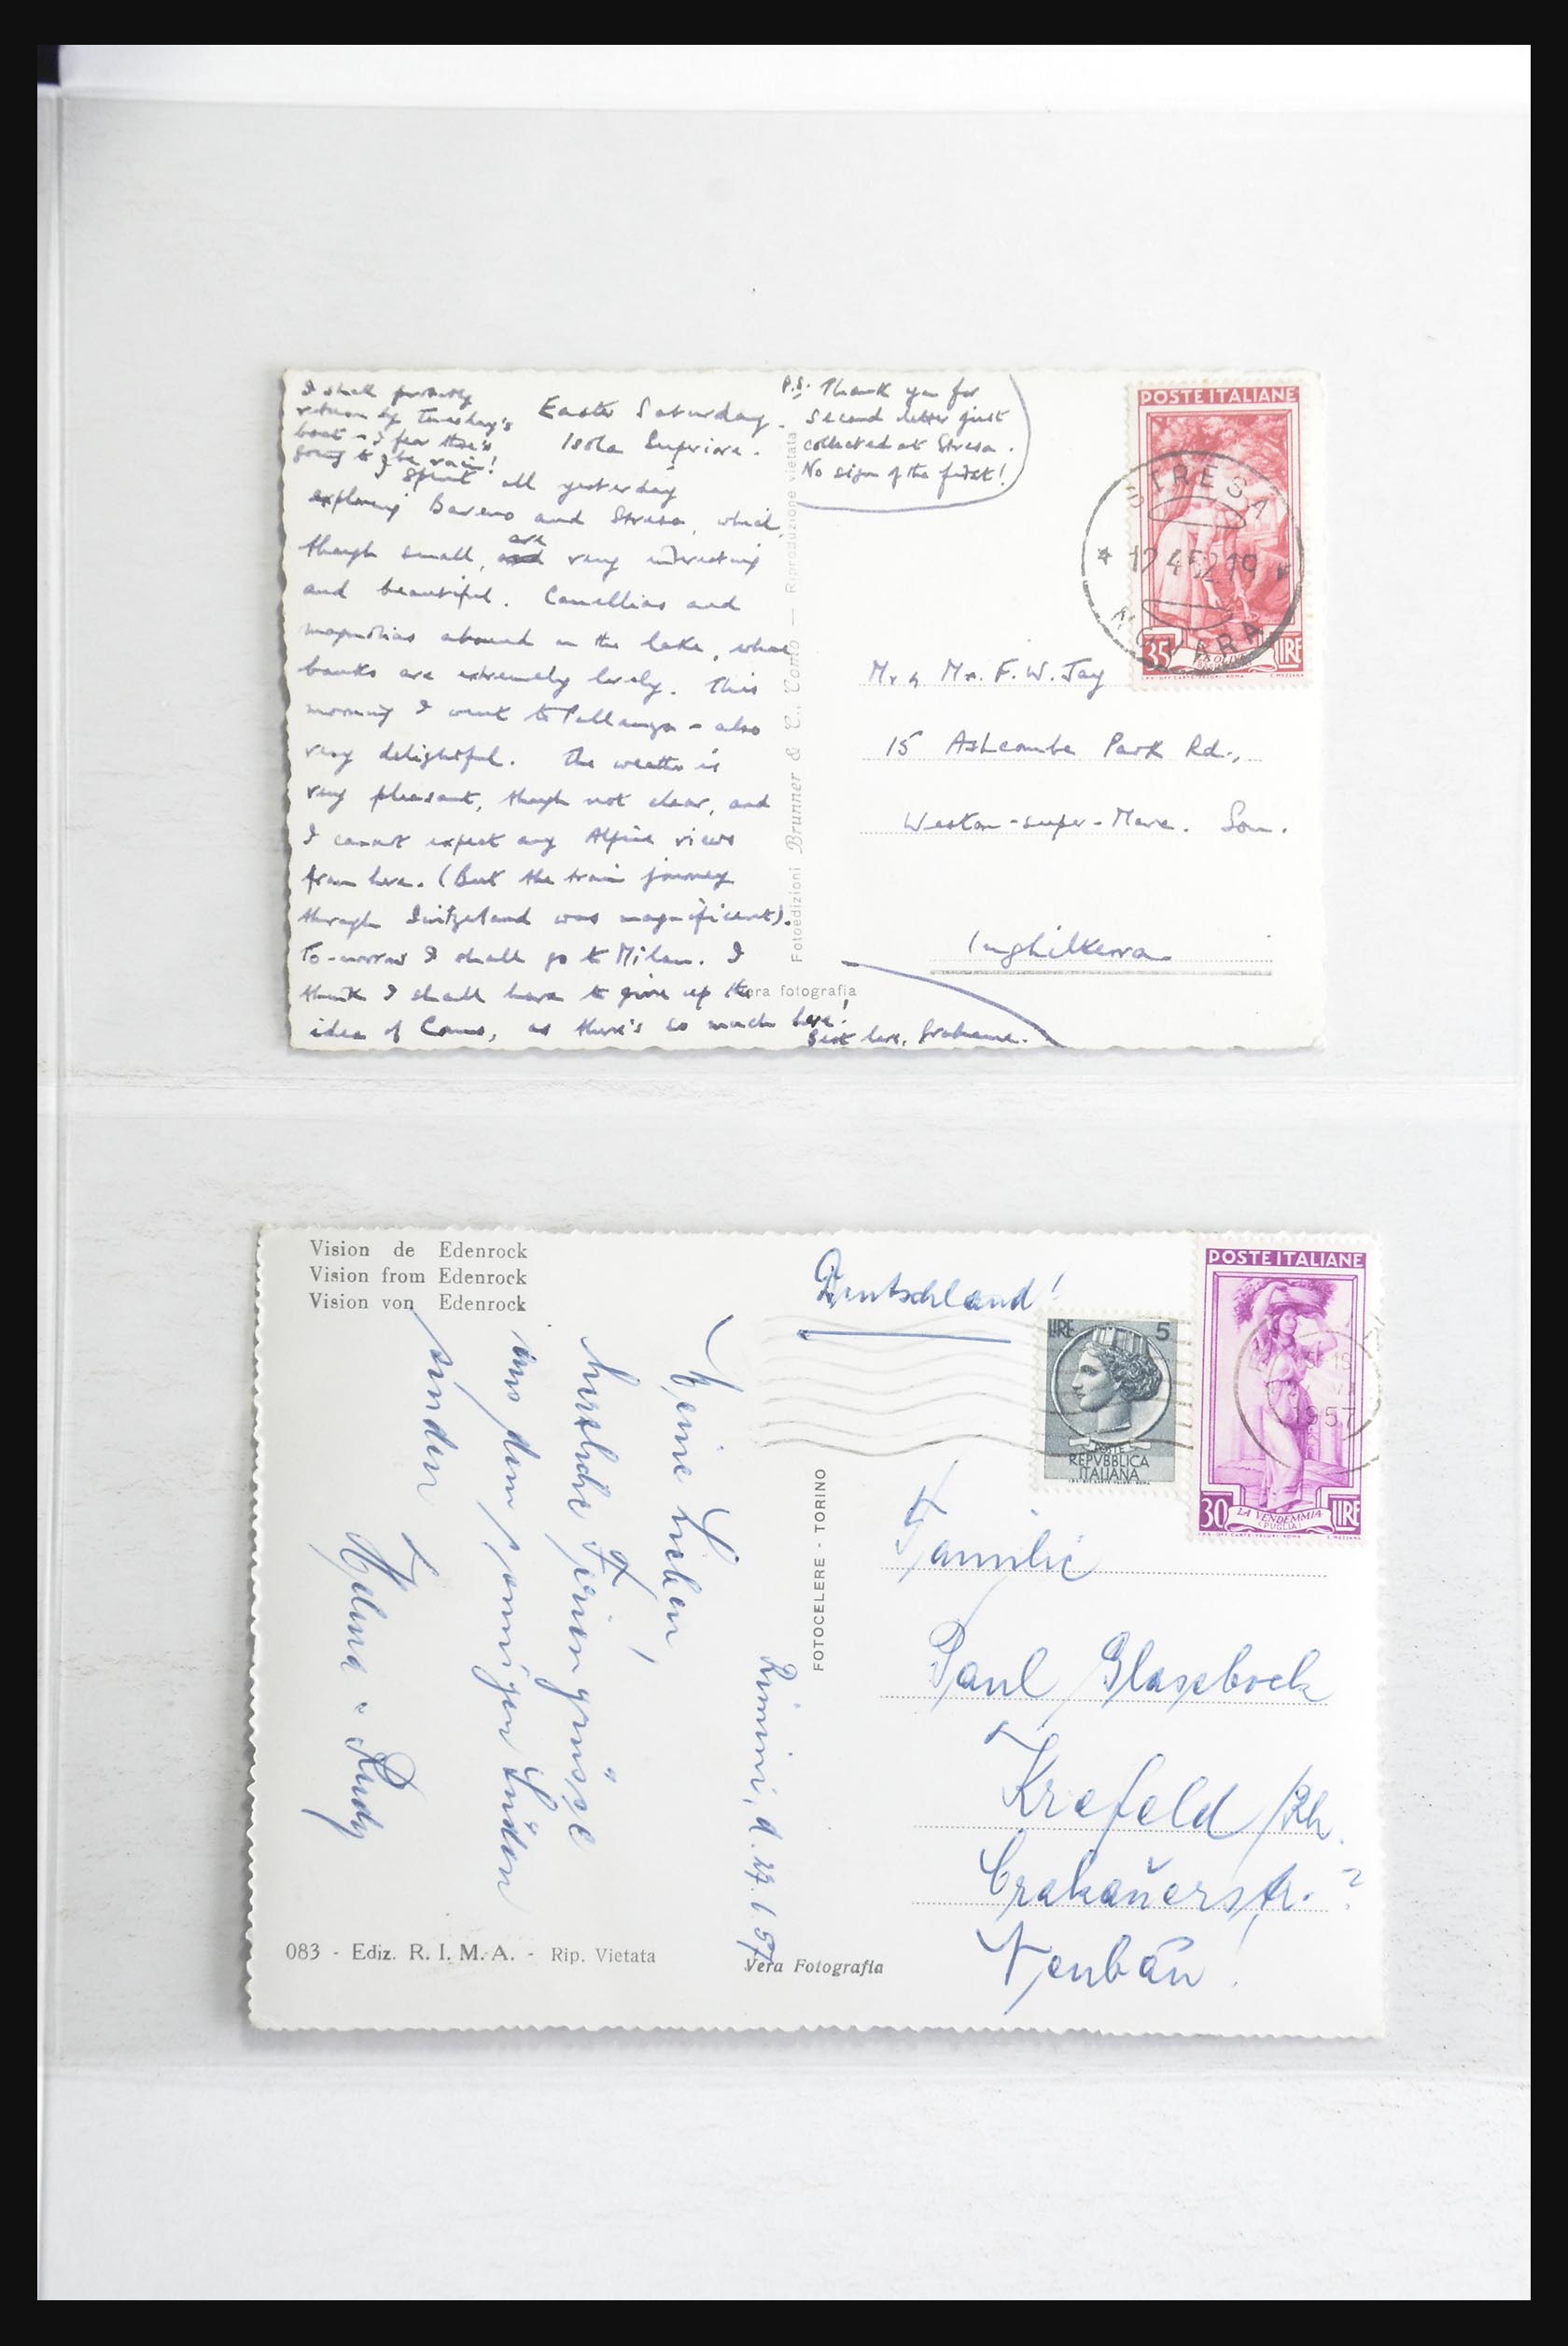 I shall probably
return by Tuesday's
boat - I fear there's
going to be rain!
Easter Saturday.
Isola Superiore.
I spent all yesterday
exploring Baveno and Stresa, which,
though small, are very interesting
and beautiful. Camellias and
magnolias abound on the lake, whose
banks are extremely lovely. This
morning I went to Pallanza - also
very delightful. The weather is
very pleasant, though not clear, and
I cannot expect any Alpine views
from here. (But the train journey
through Switzerland was magnificent).
To-morrow I shall go to Milan. I
think I shall have to give up the
idea of Como, as there's so much here!
Best love, Grahame.
P.S. Thank you for
second letter just
collected at Stresa.
No sign of the first!
Fotoedizioni Brunner & C., Como — Riproduzione vietata
Vera fotografia
POSTE ITALIANE
35 LIRE
STRESA
12 4 52 19
NOVARA
Mr & Mrs. F. W. Jay
15 Ashcombe Park Rd.,
Weston-super-Mare. Som.
Inghilterra
Vision de Edenrock
Vision from Edenrock
Vision von Edenrock
Deutschland!
LIRE 5
POSTE
REPVBBLICA
ITALIANA
POSTE ITALIANE
30 LA VENDEMMIA LIRE
(PUGLIA)
1957
Rimini, d.
Meine Lieben,
herzliche Feriengrüsse
aus dem sonnigen Süden
senden
Helma u. Rudy
FOTOCELERE - TORINO
Familie
Paul Glasebock
Krefeld /Rh.
Crakauerstr. ?
Neubau!
083 - Ediz. R. I. M. A. - Rip. Vietata
Vera Fotografia